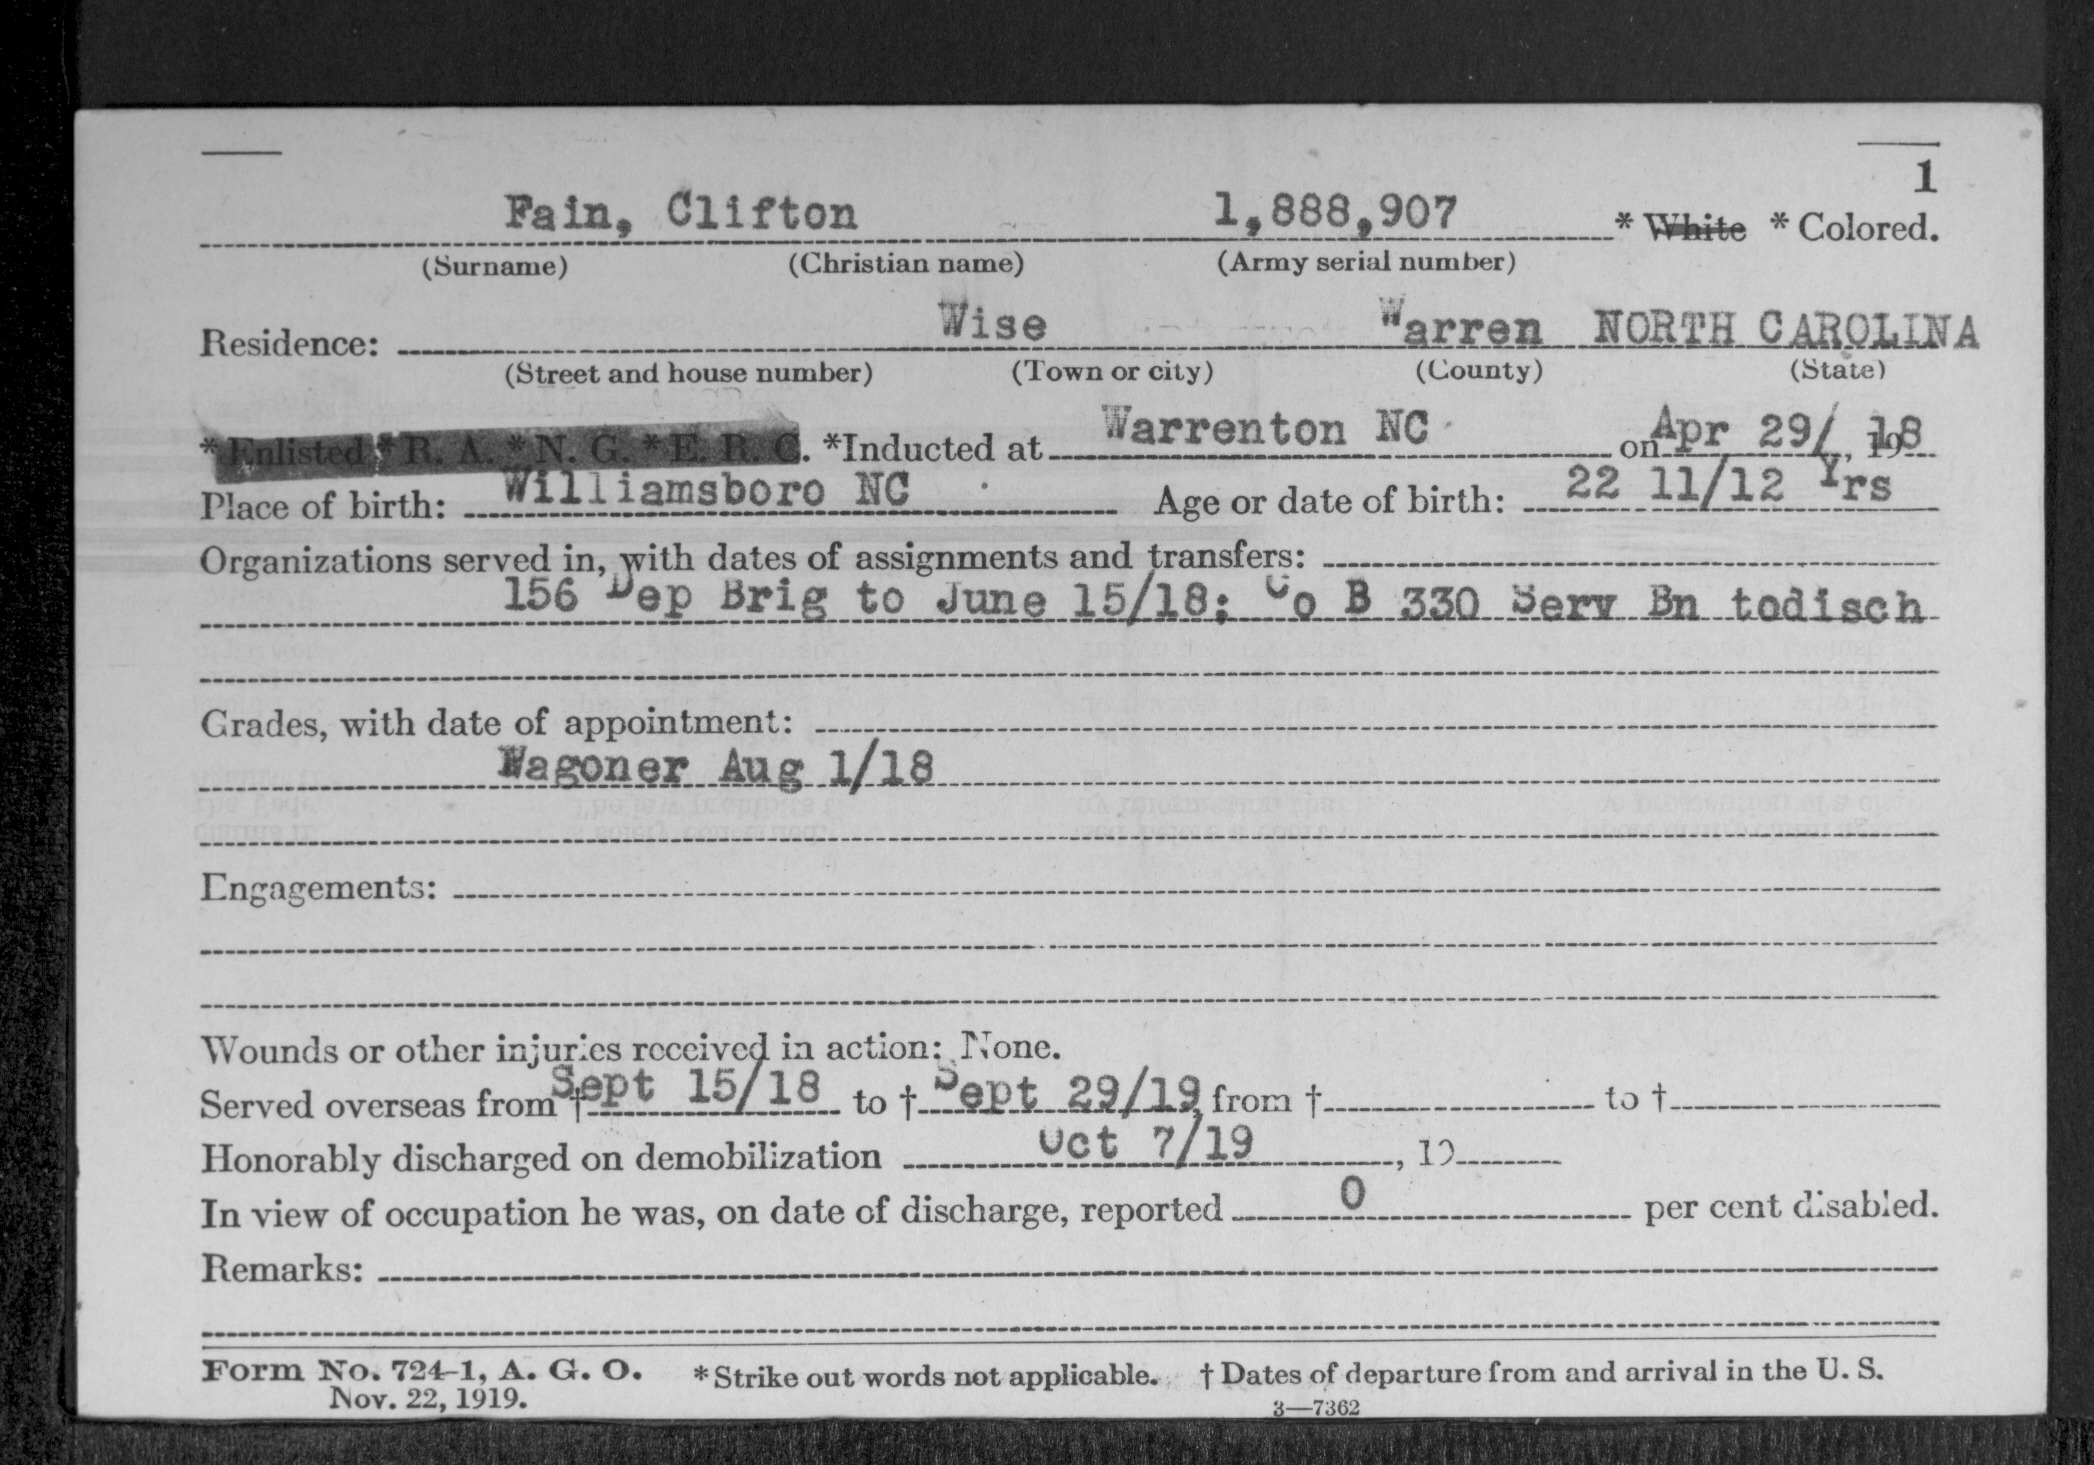 1
Fain, Clifton 1,888,907 * White * Colored.
(Surname) (Christian name) (Army serial number)
Residence: Wise Warren NORTH CAROLINA
(Street and house number) (Town or city) (County) (State)
* Enlisted * R. A. * N. G. * E. R. C. *Inducted at Warrenton NC on Apr 29/, 1918
Place of birth: Williamsboro NC Age or date of birth: 22 11/12 Yrs
Organizations served in, with dates of assignments and transfers:
156 Dep Brig to June 15/18; Co B 330 Serv Bn todisch
Grades, with date of appointment:
Wagoner Aug 1/18
Engagements:
Wounds or other injuries received in action: None.
Served overseas from † Sept 15/18 to † Sept 29/19, from † to †
Honorably discharged on demobilization Oct 7/19, 19
In view of occupation he was, on date of discharge, reported 0 per cent disabled.
Remarks:
Form No. 724-1, A. G. O. * Strike out words not applicable. † Dates of departure from and arrival in the U. S.
Nov. 22, 1919. 3—7362